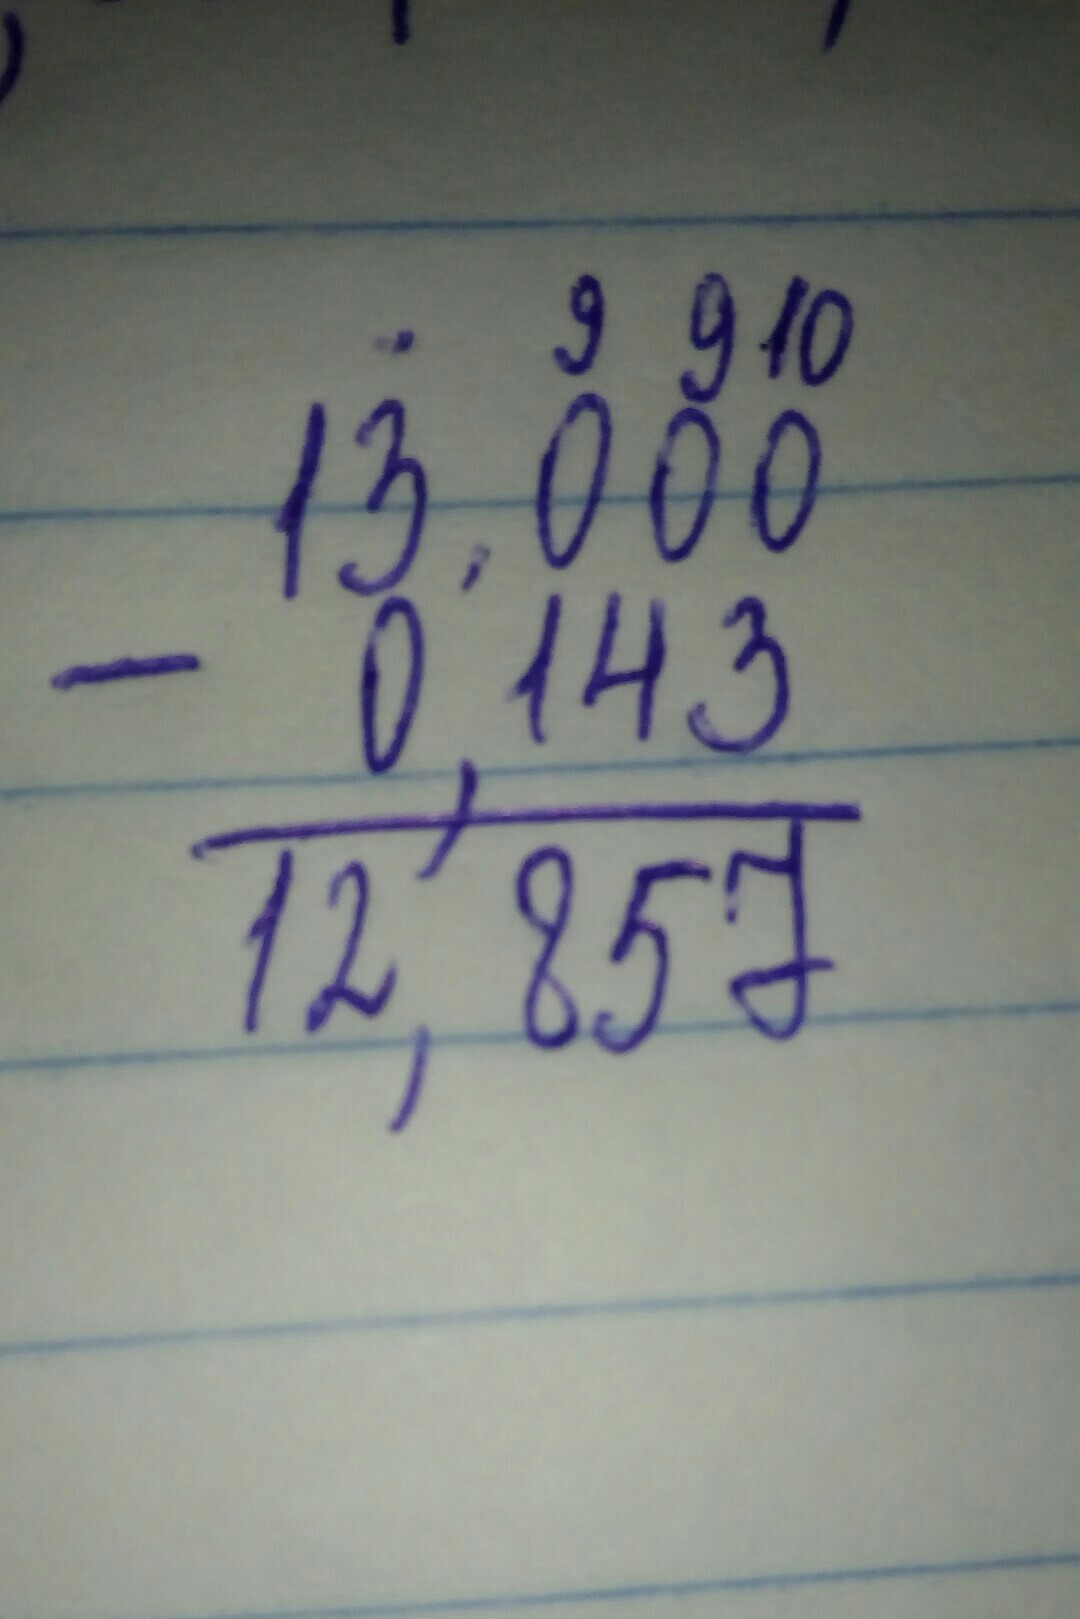 9 9 10
13,000
- 0,143
12,857